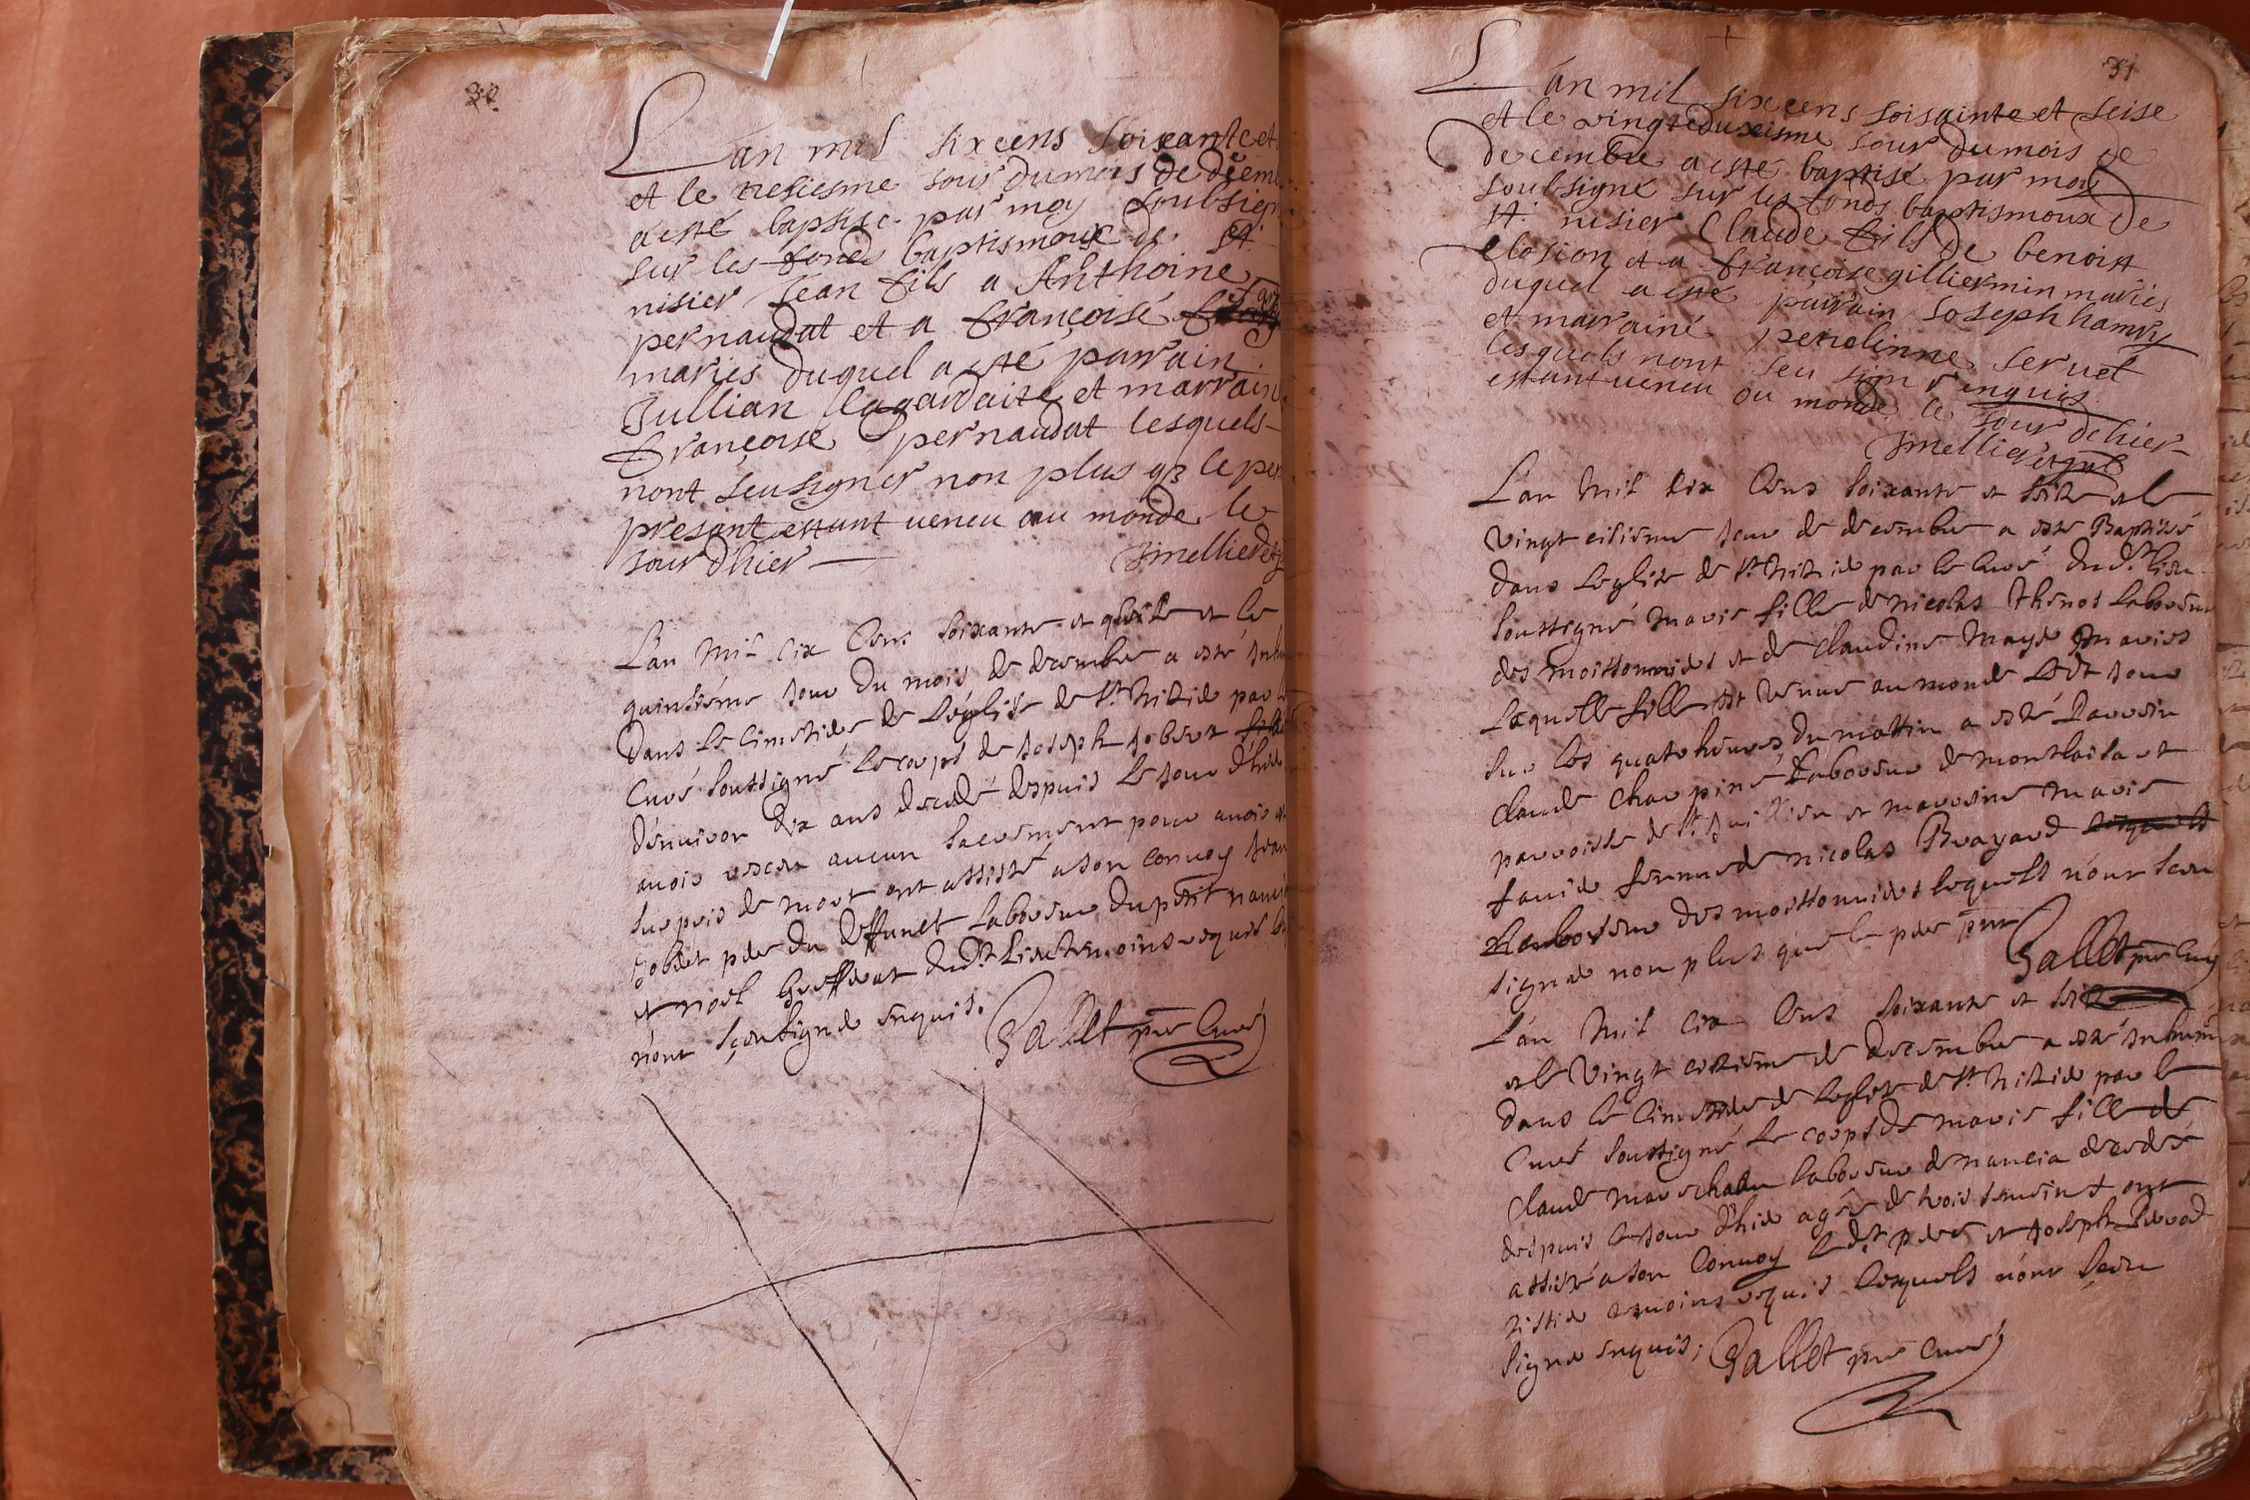 30
Lan mil six cens soixante et
et le tresiesme jour du mois de decem
a esté baptisé par moy soubsign
sur les fonds baptismoux de st
nisier Jean fils a Anthoine
pernaudat et a françoise
mariés duquel a esté parrain
Jullian lagardaite et marrain
françoise pernaudat lesquels
nont seu signer non plus q3 le per
present estant veneu au monde le
jour dhier
L'an mil six Cens soixante et seize et le
quinsiéme jour du mois de decembre a esté inhu
dans le cimetier de l'église de St Nizier par le
Curé soussigné le corps de Joseph Jobert
d'environ dix ans decedé depuis le jour d'hier
avoir receu aucun sacrement pour avoir
surpris de mort ont assisté a son convoy Jean
Jobert per du deffunct laboureur du petit nanci
et noel du.t lieu temoins requis
n'ont sceu signer enquis.
Gallet pre Curé
31
Lan mil six cens soisainte et seise
et le vingtduxiesme jour du mois de
decembre a esté baptisé par moy
soubsigné sur les fonds baptismoux de
st nisier Claude fils de benoist
closion et a françoise gilliermin mariés
duquel a esté parrain Joseph hamry
et marraine peroline seruet
lesquels nont seu signer enquis
estant veneu ou monde le jour dhier
L'an Mil six Cens soixante et seize et le
vingt cisieme jour de decembre a esté Baptisé
dans L'eglise de St Nizier par le Curé du d.t lieu
soussigné marie fille de nicolas thenos laboureur
des moissonniers et de claudine maye mariés
laquelle fille est venue au monde led.t jour
sur les quatre heures du mattin a esté parrein
claude charpiné laboureur de montlaila et
parroisse de St Jullien et marreine marie
favié femme de nicolas Brayard
laboureur des moissonniers lequels n'ont sceu
signer non plus que le per pnt
Gallet pre Curé
L'an Mil six Cens soixante et seize
et le vingt cisieme de decembre a esté inhumé
dans le cimetier de l'eglise de St Nizier par le
Curé soussigné le corps de marie fille de
claude mareschalu laboureur de nancia decedée
despuis le jour d'hier agée de trois semeines ont
assisté a son convoy le d.t per et Joseph
temoins requis lesquels n'ont sceu
signer enquis; Gallet pre Curé